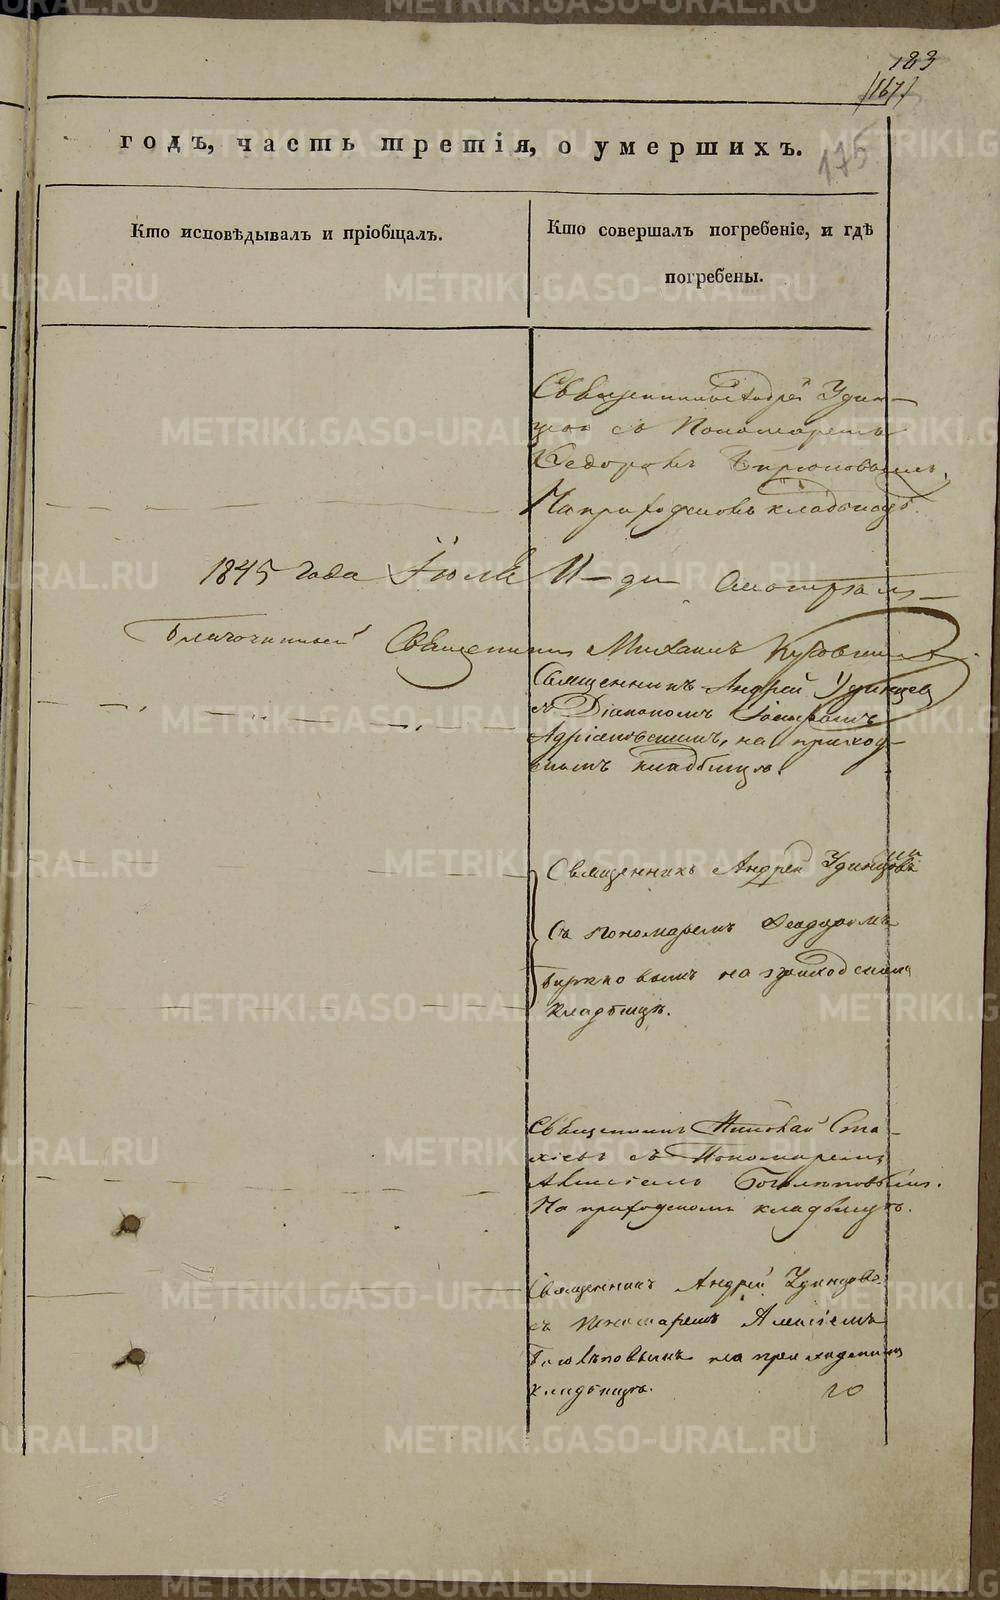 183
/167/
175
годъ, часть третія, о умершихъ.
Кто исповѣдывалъ и пріобщалъ.
Кто совершалъ погребеніе, и гдѣ
погребены.
Священникъ Андрей Удин-
цов съ Пономаремъ
Ѳедоромъ Бирюковымъ,
На приходскомъ кладбищѣ.
1845 года Іюля 11 дня Смотрѣлъ
Благочинный Священникъ Михаилъ
Священникъ Андрей Удинцев
съ Діакономъ
Адріановскимъ, на приход-
скомъ кладбищѣ.
Священникъ Андрей Удинцовъ
Съ пономаремъ Ѳеодоромъ
Бирюковымъ на приходскомъ
кладбищѣ.
Священникъ Николай
съ Пономаремъ
Алексіемъ Боголѣповымъ.
На приходскомъ кладбищѣ.
Священникъ Андрей Удинцовъ
съ пономаремъ Алексіемъ
Боголѣповымъ на приходскомъ
кладбищѣ.
METRIKI.GASO-URAL.RU